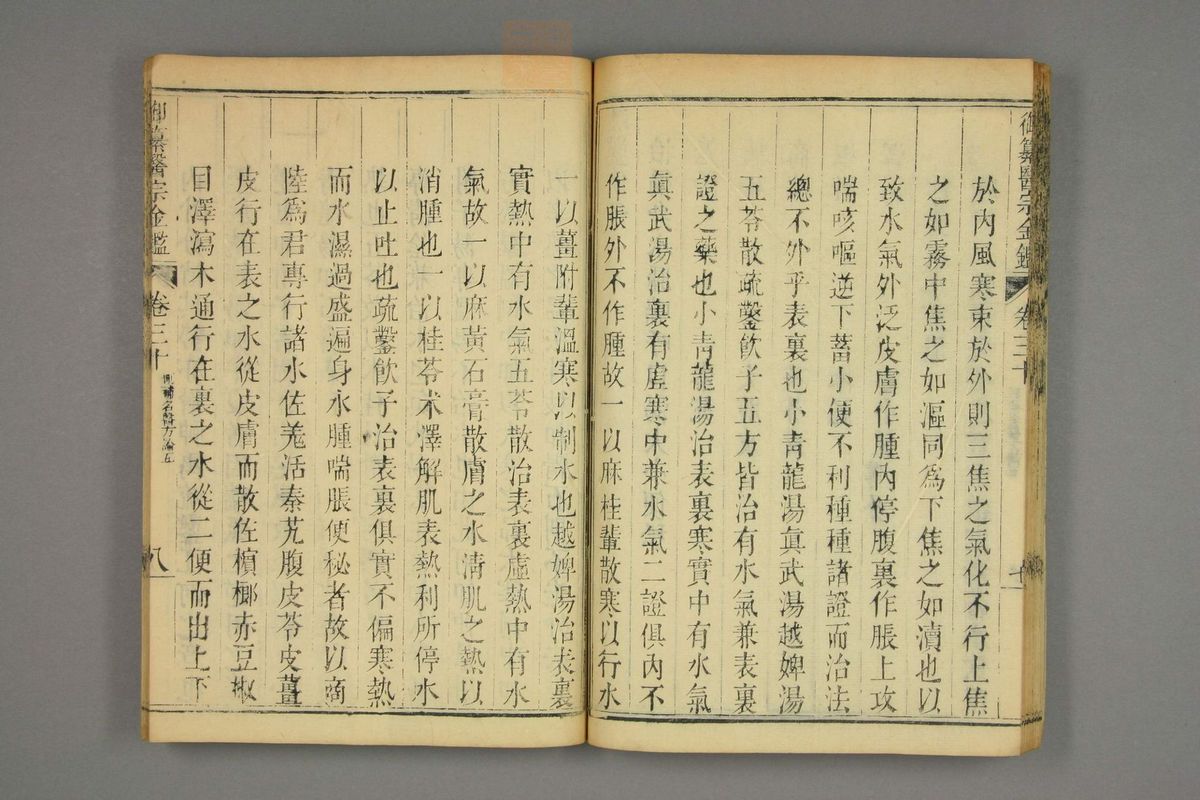 御纂醫宗金鑑 卷三十
七
於內風寒束於外則三焦之氣化不行上焦
之如霧中焦之如漚同為下焦之如瀆也以
致水氣外泛皮膚作腫內停腹裏作脹上攻
喘咳嘔逆下蓄小便不利種種諸證而治法
總不外乎表裏也小青龍湯眞武湯越婢湯
五苓散疏鑿飲子五方皆治有水氣兼表裏
證之藥也小青龍湯治表裏寒實中有水氣
眞武湯治裏有虛寒中兼水氣二證俱內不
作脹外不作腫故一以麻桂輩散寒以行水
一以薑附輩溫寒以制水也越婢湯治表裏
實熱中有水氣五苓散治表裏虛熱中有水
氣故一以麻黃石膏散膚之水清肌之熱以
消腫也一以桂苓朮澤解肌表熱利所停水
以止吐也疏鑿飲子治表裏俱實不偏寒熱
而水濕過盛遍身水腫喘脹便秘者故以商
陸為君專行諸水佐羗活秦艽腹皮苓皮薑
皮行在表之水從皮膚而散佐檳榔赤豆椒
目澤瀉木通行在裏之水從二便而出上下
御纂醫宗金鑑 卷三十 刪補名醫方論五
八